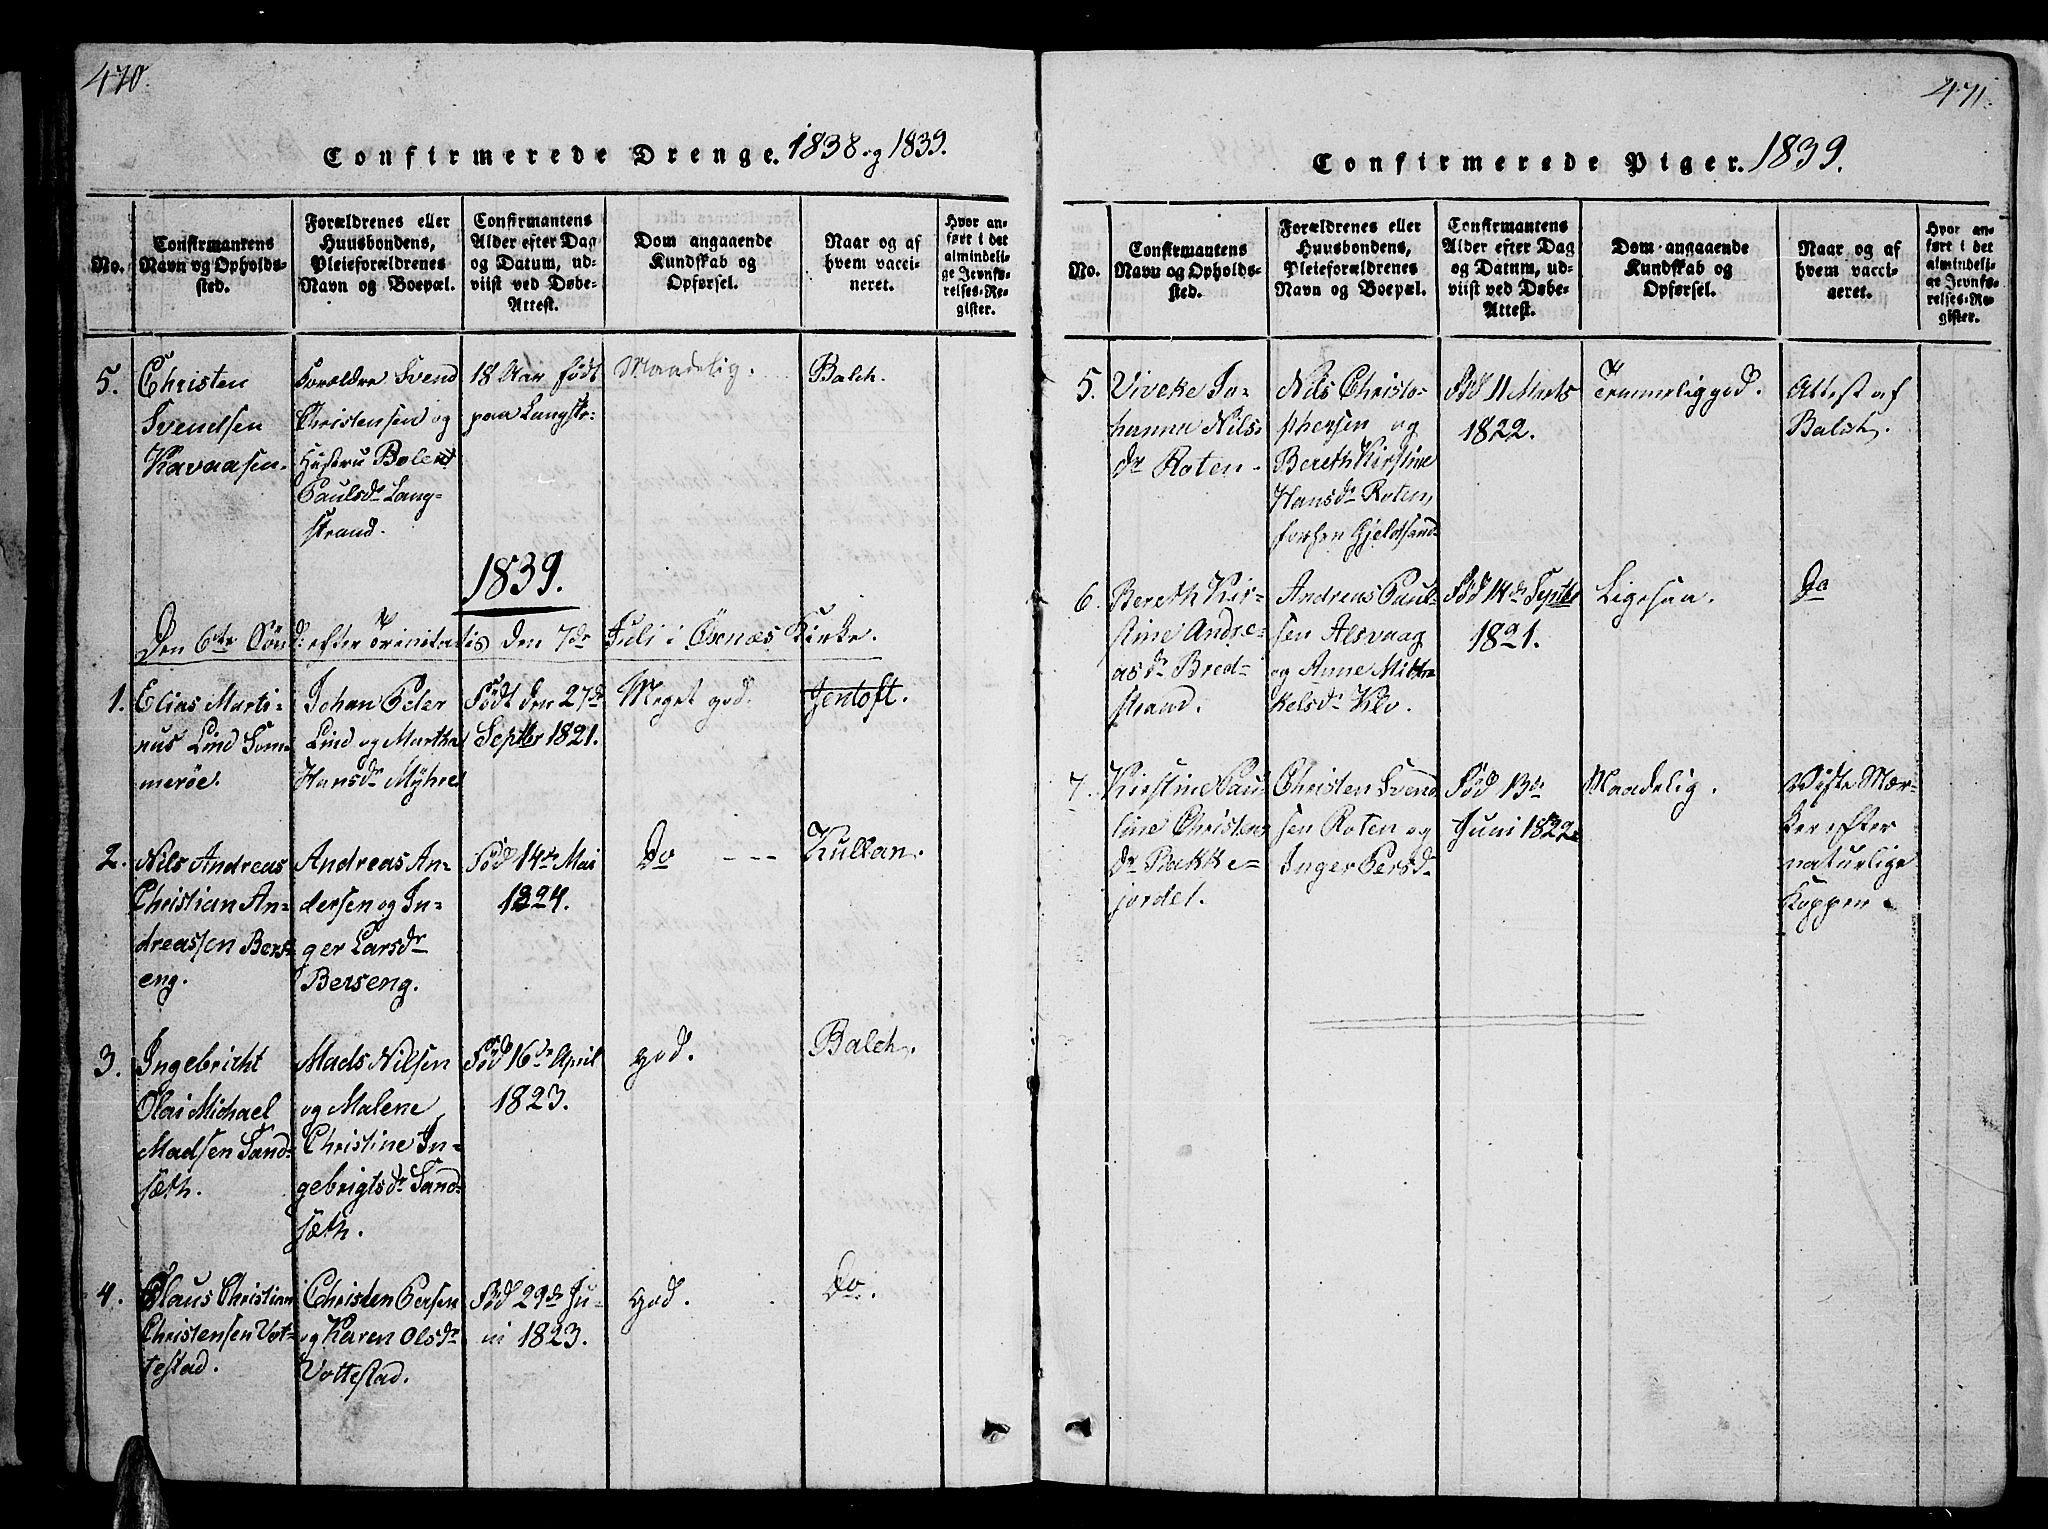 470.
Confirmerede Drenge. 1838 og 1839.
No.
Confirmantens
Navn og Opholds-
sted.
Forældrenes eller
Huusbondens,
Pleieforældrenes
Navn og Boepæl.
Confirmantens
Alder efter Dag
og Datum, ud-
viist ved Døbe-
Attest.
Dom angaaende
Kundskab og
Opførsel.
Naar og af
hvem vacci-
neret.
Hvor an-
ført i det
almindeli-
ge Jevnfø-
relses-Re-
gister.
5.
Christen
Svendsen
Kavaasen.
Forældre Svend
Christensen og
Hustru Bolent
Paulsdr Lang-
strand.
18 Aar født
paa Langstr.
Maadelig.
Balch.
1839.
Den 6te Sønd: efter Trinitatis den 7de Juli i Øxnæs Kirke.
1.
Elias Marti-
nus Lind Som-
merøe.
Johan Peter
Lind og Martha
Hansdr Myhre
Født den 27de
Septbr 1821.
Meget god.
Jentoft.
2.
Nils Andreas
Christian An-
dreassen Bers-
eng.
Andreas An-
dersen og In-
ger Larsdr
Berseng.
Fød 14de Mai
1824.
Do ---
Kullan.
3.
Ingebricht
Olai Michael
Madsen Sand-
sæth.
Mads Nilsen
og Malene
Christine In-
gebrigtsdr Sand-
sæth.
Fød 16de April
1823.
god.
Balch.
4.
Claus Christian
Christensen Vot-
testad.
Christen Persen
og Karen Olsdr
Vottestad.
Fød 29de Ju-
ni 1823.
god.
Do.
471.
Confirmerede Piger. 1839.
No.
Confirmantens
Navn og Opholds-
sted.
Forældrenes eller
Huusbondens,
Pleieforældrenes
Navn og Boepæl.
Confirmantens
Alder efter Dag
og Datum, ud-
viist ved Døbe-
Attest.
Dom angaaende
Kundskab og
Opførsel.
Naar og af
hvem vacci-
neret.
Hvor an-
ført i det
almindeli-
ge Jevnfø-
relses-Re-
gister.
5.
Viveke Jo-
hanna Nils-
dr Roten.
Nils Christo-
phersen og
Bereth Kirstine
Hansdr Roten,
forhen Gjeldsand
Fød 11 Marts
1822.
Temmelig god.
Attest af
Balch.
6.
Bereth Kir-
stine Andre-
asdr Bred-
strand.
Andreas Paul-
sen Alsvaag
og Anne Mich-
kelsdr Klo.
Fød 14de Septbr
1821.
Ligesaa.
Do
7.
Kirstine Pau-
line Christens-
dr Rakke-
jordet.
Christen Svend-
sen Roten og
Inger Persdr
Fød 13de
Juni 1822.
Maadelig.
Viste Mær-
ker efter
naturlige
Kopper.